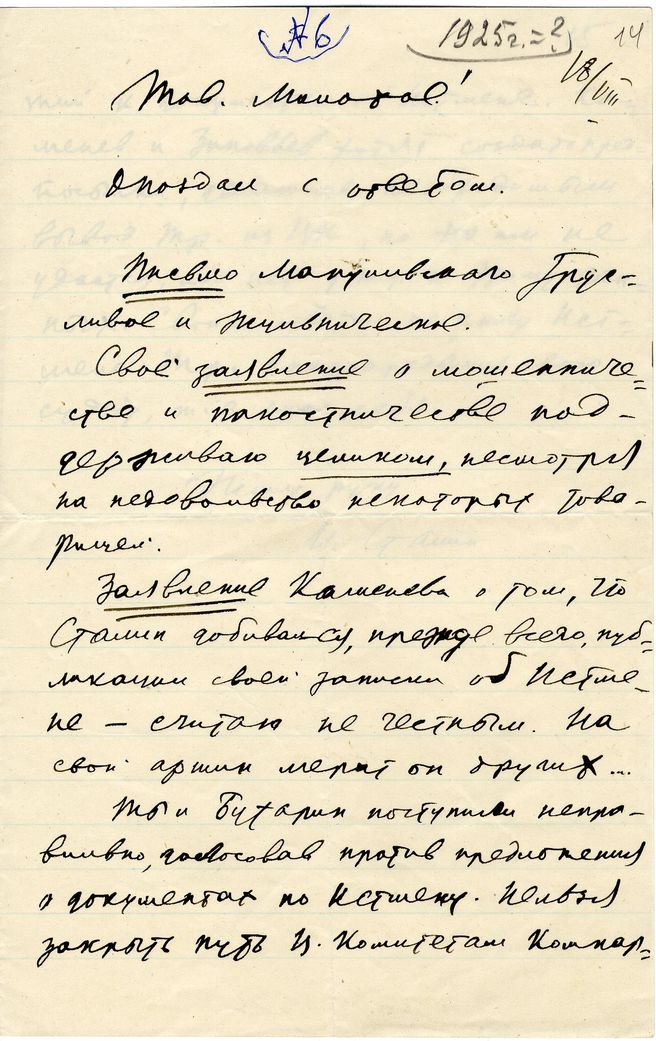 № 6 1925 г. = ? 14
18/VIII
Тов. Молотов!
Опоздал с ответом.
Письмо Мануильского трус-
ливое и жульническое.
Своё заявление о мошенниче-
стве и пакостничестве под-
держиваю целиком, несмотря
на недовольство некоторых това-
рищей.
Заявление Каменева о том, что
Сталин добивался, прежде всего, пуб-
ликации своей записки об Истме-
не – считаю не честным. На
свой аршин мерит он других...
Ты и Бухарин поступили непра-
вильно, голосовав против предложения
о документах по Истмену. Нельзя
закрыть путь Ц. Комитетам Компар-